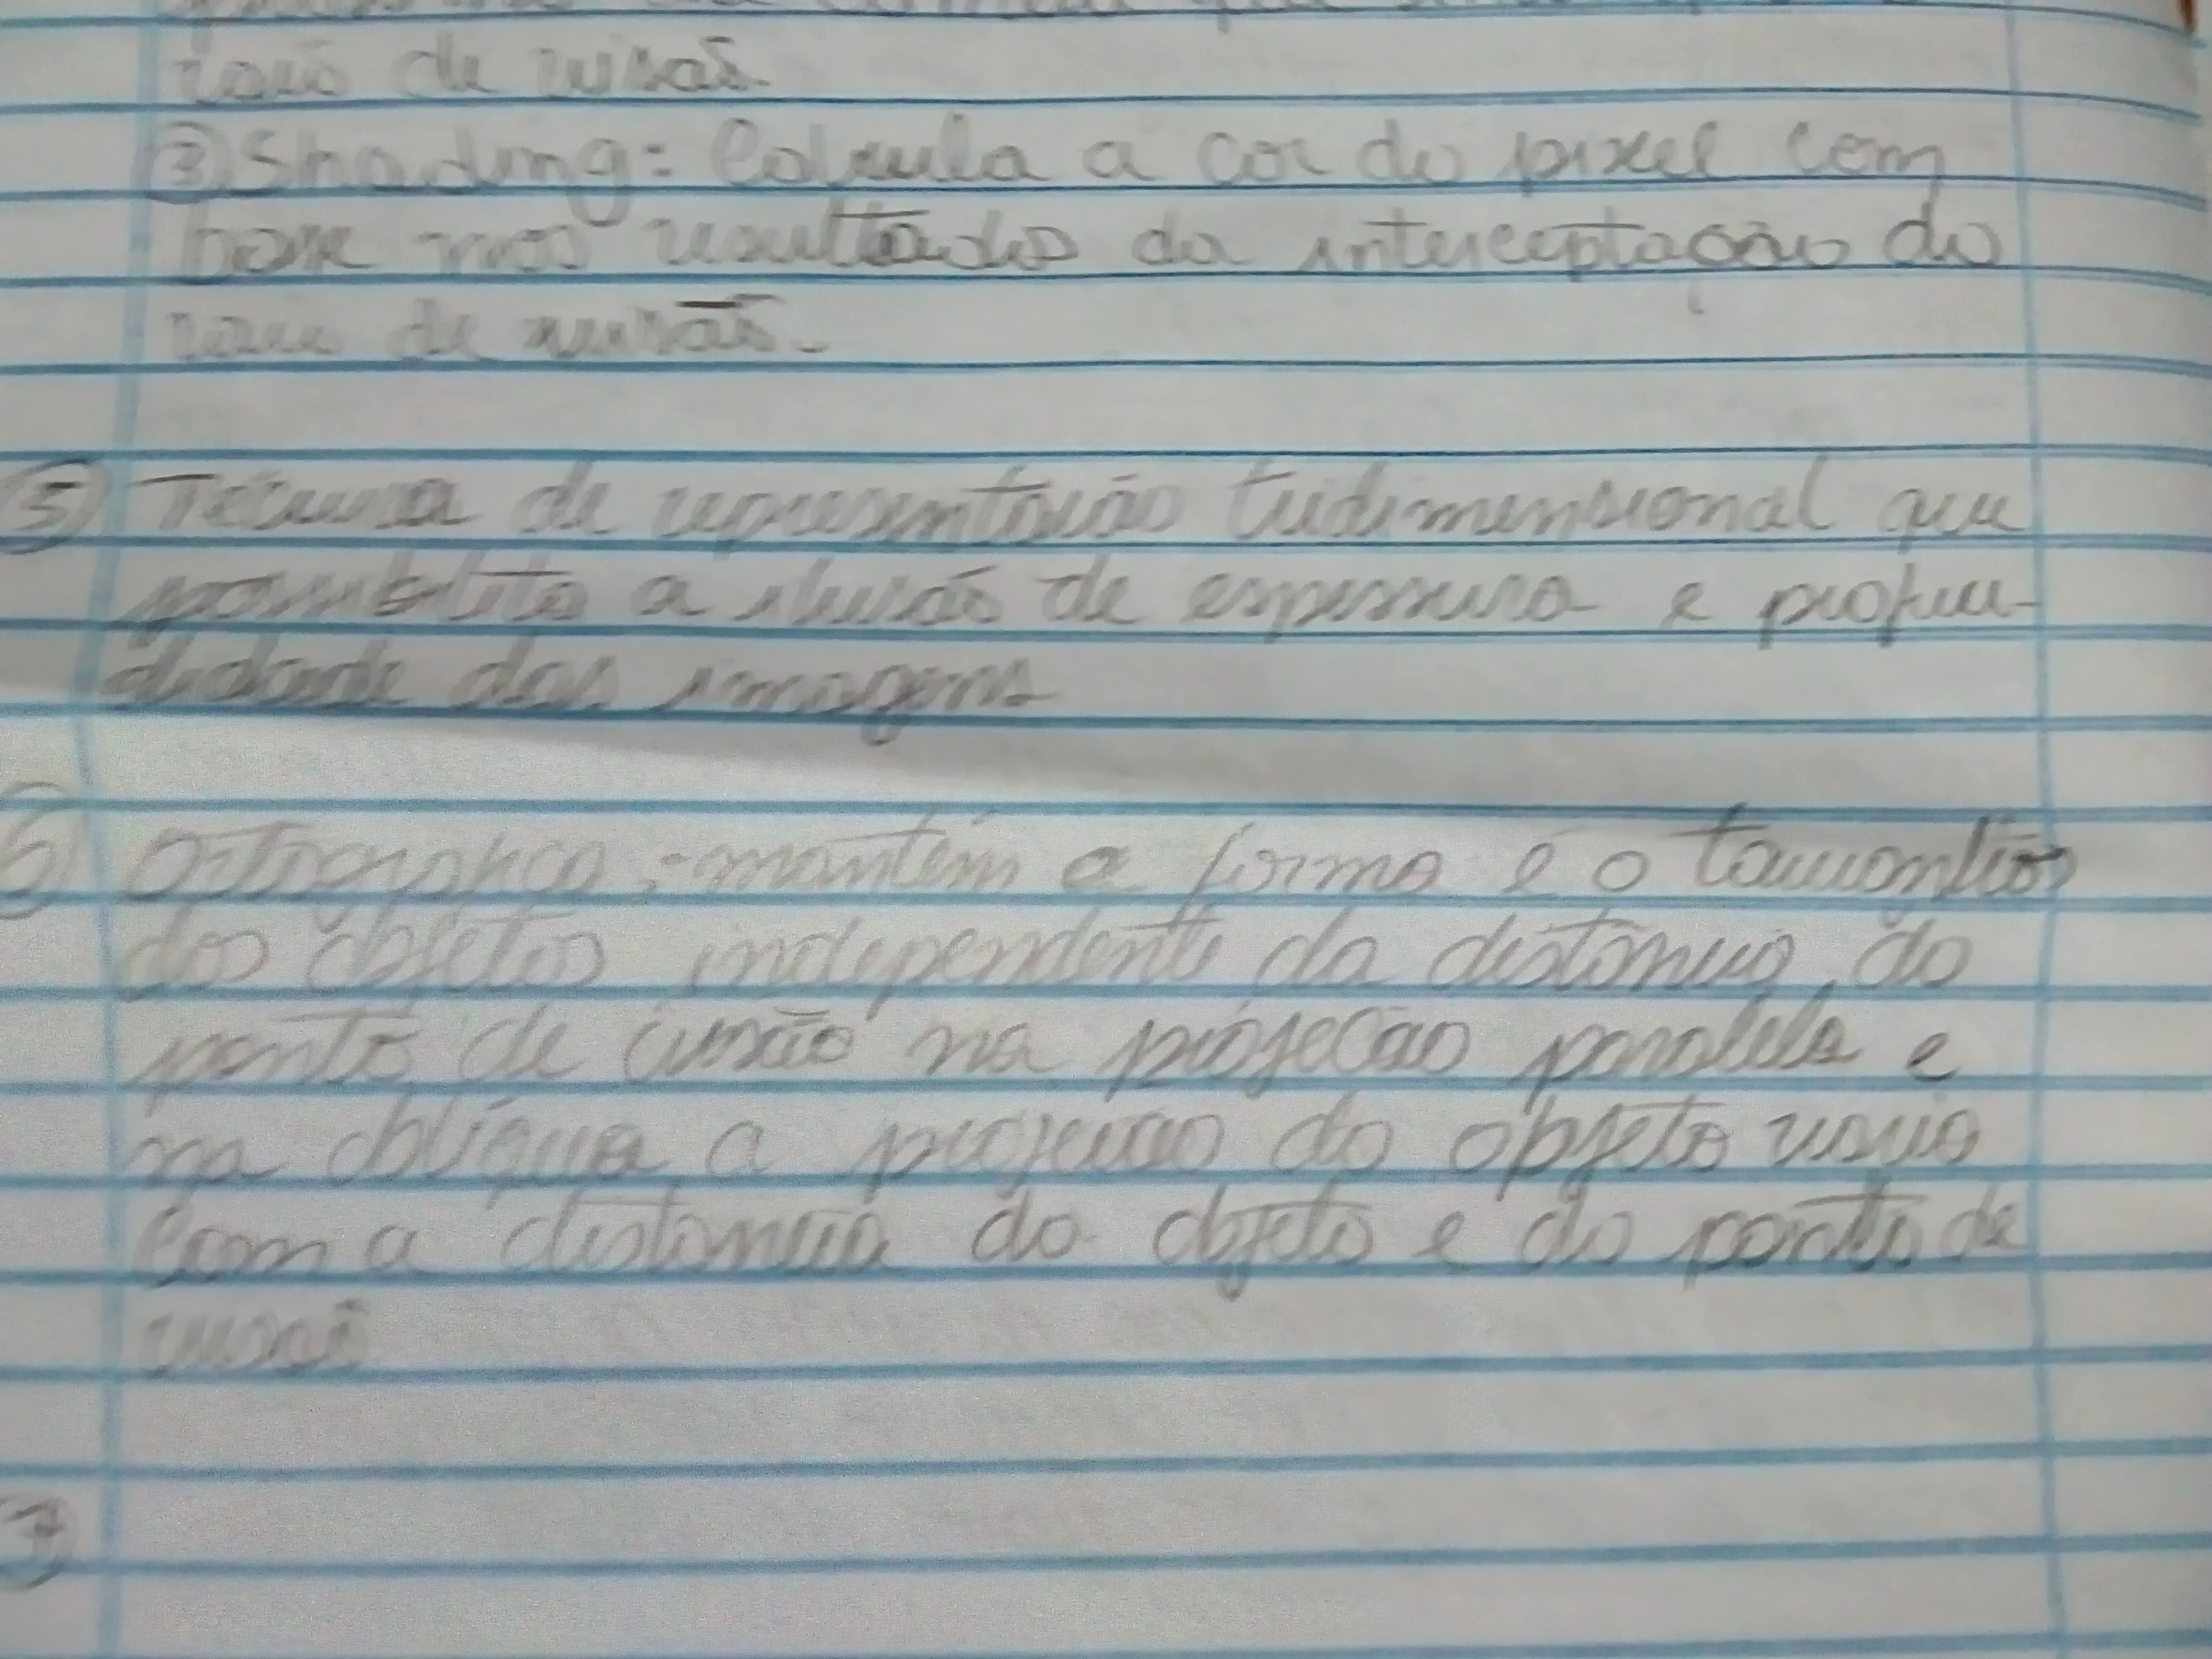 raio de visão.
③ Shading: Calcula a cor do pixel com
base nos resultados da interceptação do
raio de visão.
⑤ Técnica de representação tridimensional que
possibilita a ilusão de espessura e profun-
didade das imagens
⑥ Ortográfica: mantém a forma e o tamanho
dos objetos independente da distância do
ponto de visão na projeção paralela e
na oblíqua a projeção do objeto varia
com a distância do objeto e do ponto de
visão
⑦